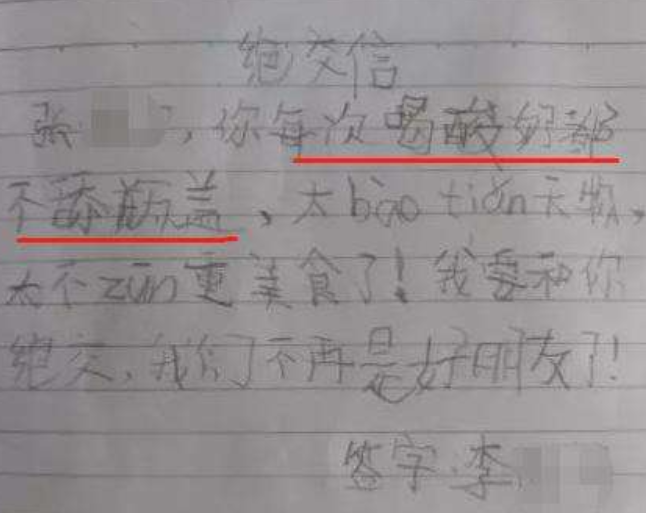 绝交信
张，你每次喝酸奶都
不舔瓶盖、太bāo tiǎn天物，
太不zūn重美食了！我要和你
绝交，我们不再是好朋友了！
签字：李